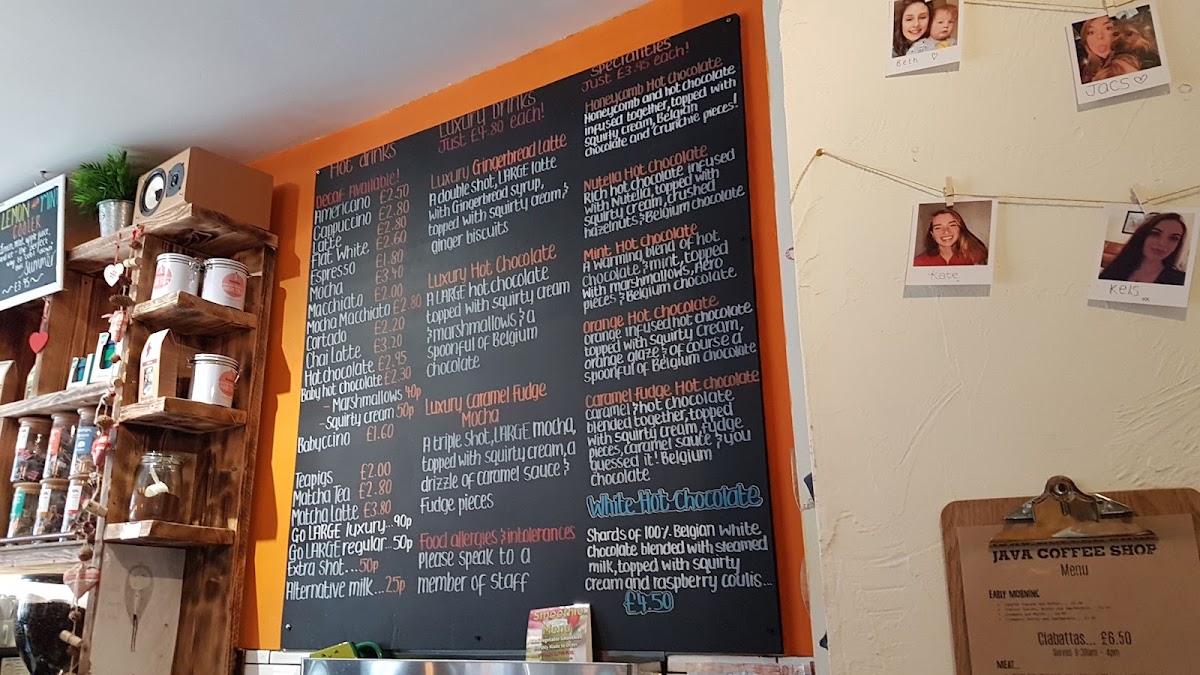 LEMON and MINT
COOLER
SUMMER
~£3.95~
Hot drinks
Decaf available!
Americano £2.50
Cappuccino £2.80
Latte £2.80
Flat White £2.60
Espresso £1.80
Mocha £3.40
Macchiato £2.00
Mocha Macchiato £2.80
Cortado £2.20
Chai Latte £3.20
Hot chocolate £2.95
Baby hot chocolate £2.30
- Marshmallows 40p
- Squirty cream 50p
Babyccino £1.60
Teapigs £2.00
Matcha Tea £2.80
Matcha Latte £3.80
Go LARGE luxury...90p
Go LARGE regular...50p
Extra Shot....50p
Alternative milk....25p
Luxury Drinks
Just £4.80 each!
Luxury Gingerbread Latte
A double shot, LARGE latte
with Gingerbread syrup,
topped with squirty cream &
ginger biscuits
Luxury Hot Chocolate
A LARGE hot chocolate
topped with squirty cream
& marshmallows & a
spoonful of Belgium
chocolate
Luxury Caramel Fudge
Mocha
A triple shot, LARGE mocha,
topped with squirty cream, a
drizzle of caramel sauce &
Fudge pieces
Food allergies & intolerances
Please speak to a
member of staff
Specialities
Just £3.95 each!
Honeycomb Hot Chocolate
Honeycomb and hot chocolate
infused together, topped with
squirty cream, Belgian
chocolate and Crunchie pieces!
Nutella Hot Chocolate
Rich hot chocolate infused
with Nutella, topped with
squirty cream, crushed
hazelnuts & Belgium chocolate
Mint Hot chocolate
A warming blend of hot
chocolate & mint, topped
with marshmallows, Aero
pieces & Belgium chocolate
Orange Hot chocolate
Orange infused hot chocolate
topped with squirty cream,
orange glaze & of course a
spoonful of Belgium chocolate
Caramel Fudge Hot chocolate
Caramel & hot Chocolate
blended together, topped
with squirty cream, fudge
pieces, caramel sauce & you
guessed it! Belgium
chocolate
White Hot Chocolate
Shards of 100% Belgian white
chocolate blended with steamed
milk, topped with squirty
cream and raspberry coulis...
£4.50
Smoothie
Menu
Beth ♡
Jacs ♡
Kate
Kels xx
JAVA COFFEE SHOP
Menu
EARLY MORNING
Ciabattas... £6.50
Serves 9:30am - 4pm
MEAT...